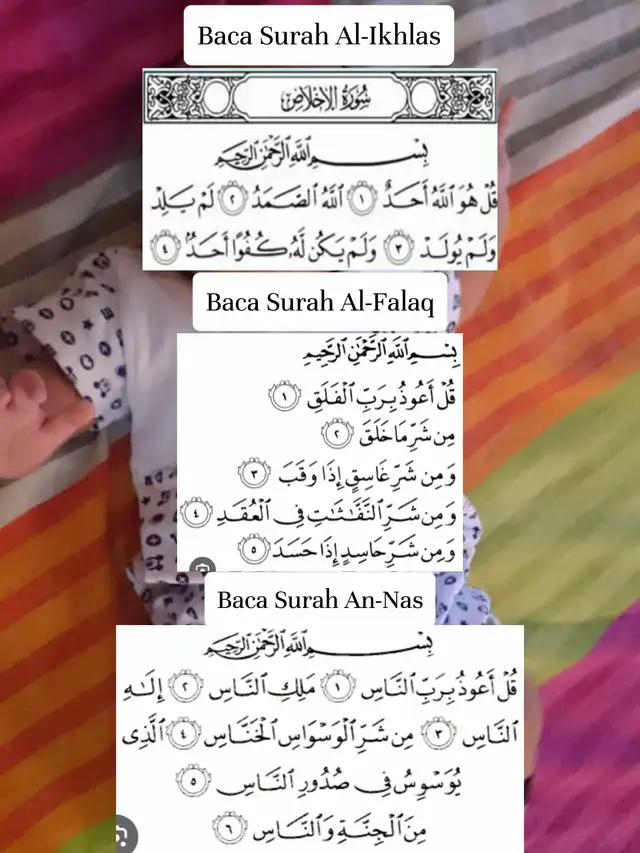 Baca Surah Al-Ikhlas
سُورَةُ الإِخْلَاصِ
بِسْمِ اللَّهِ الرَّحْمَٰنِ الرَّحِيمِ
قُلْ هُوَ اللَّهُ أَحَدٌ ١ اللَّهُ الصَّمَدُ ٢ لَمْ يَلِدْ
وَلَمْ يُولَدْ ٣ وَلَمْ يَكُن لَّهُ كُفُوًا أَحَدٌ ٤
Baca Surah Al-Falaq
بِسْمِ اللَّهِ الرَّحْمَٰنِ الرَّحِيمِ
قُلْ أَعُوذُ بِرَبِّ الْفَلَقِ ١
مِن شَرِّ مَا خَلَقَ ٢
وَمِن شَرِّ غَاسِقٍ إِذَا وَقَبَ ٣
وَمِن شَرِّ النَّفَّاثَاتِ فِي الْعُقَدِ ٤
وَمِن شَرِّ حَاسِدٍ إِذَا حَسَدَ ٥
Baca Surah An-Nas
بِسْمِ اللَّهِ الرَّحْمَٰنِ الرَّحِيمِ
قُلْ أَعُوذُ بِرَبِّ النَّاسِ ١ مَلِكِ النَّاسِ ٢ إِلَٰهِ
النَّاسِ ٣ مِن شَرِّ الْوَسْوَاسِ الْخَنَّاسِ ٤ الَّذِي
يُوَسْوِسُ فِي صُدُورِ النَّاسِ ٥
مِنَ الْجِنَّةِ وَالنَّاسِ ٦